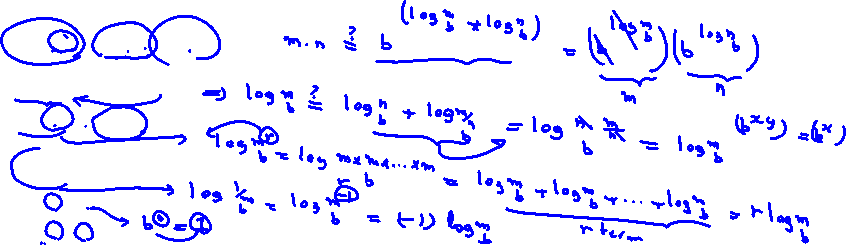 m · n ≟ b^(log_b^m + log_b^n) = (b^log_b^m)(b^log_b^n)
m n
⇒ log_b^m ≟ log_b^n + log_b^m/n = log_b^n m/n = log_b^m (b^xy) = (b^x)
log_b^m^r = log_b^m×m×...×m = log_b^m + log_b^m + ... + log_b^m = r log_b^m
r
r term
log_b^1/m = log_b^m^-1 = (-1) log_b^m
b^0 = 1